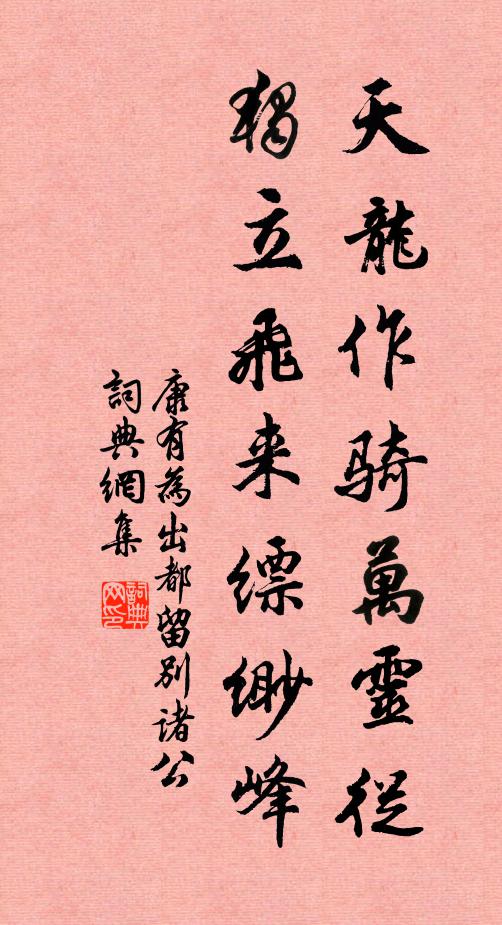 天龍作騎萬靈從
獨立飛来縹緲峰
康有為出都留別諸公
詞典網集
詞典网印